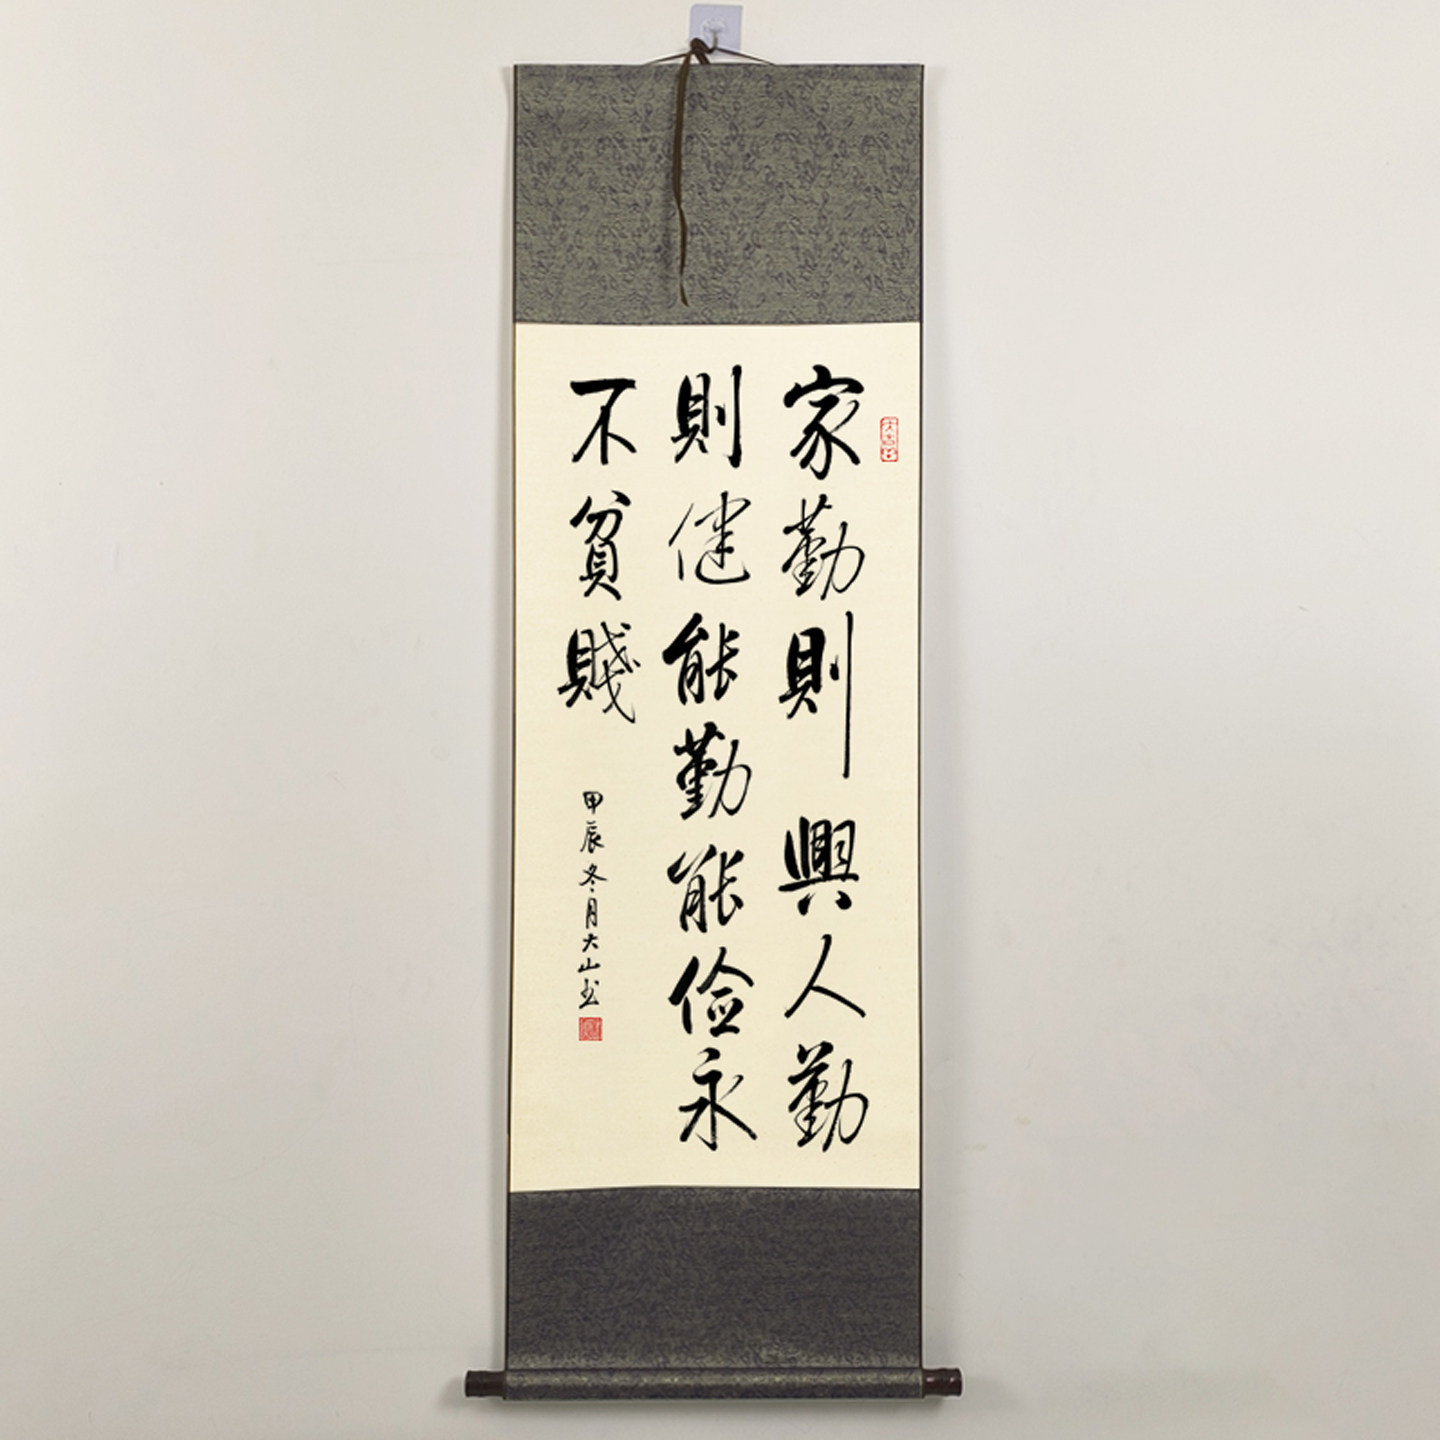 家勤則興人勤
則健能勤能俭永
不貧賤
甲辰冬月大山书